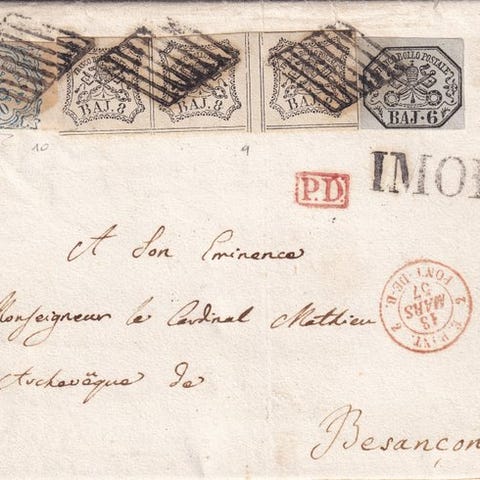 FRANCO BOLLO POSTALE
BAJ. 8
BAJ. 8
BAJ. 8
BOLLO POSTALE
BAJ. 6
10
9
P.D.
IMO
A Son Eminence
Monseigneur le Cardinal Mathieu
Archevêque de
Besançon
E. PONT. 2
13
MARS
57
PONT-DE-B. 2